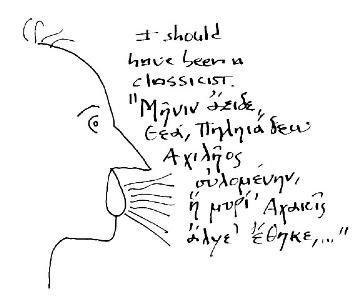 I should
have been a
classicist.
"Μῆνιν ἄειδε,
Θεά, Πηληιάδεω
Ἀχιλῆος
οὐλομένην,
ἥ μυρί' Ἀχαιοῖς
ἄλγε' ἔθηκε,..."